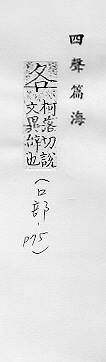 四聲篇海
各 柯落切說
文異辭也
(口部, P75)